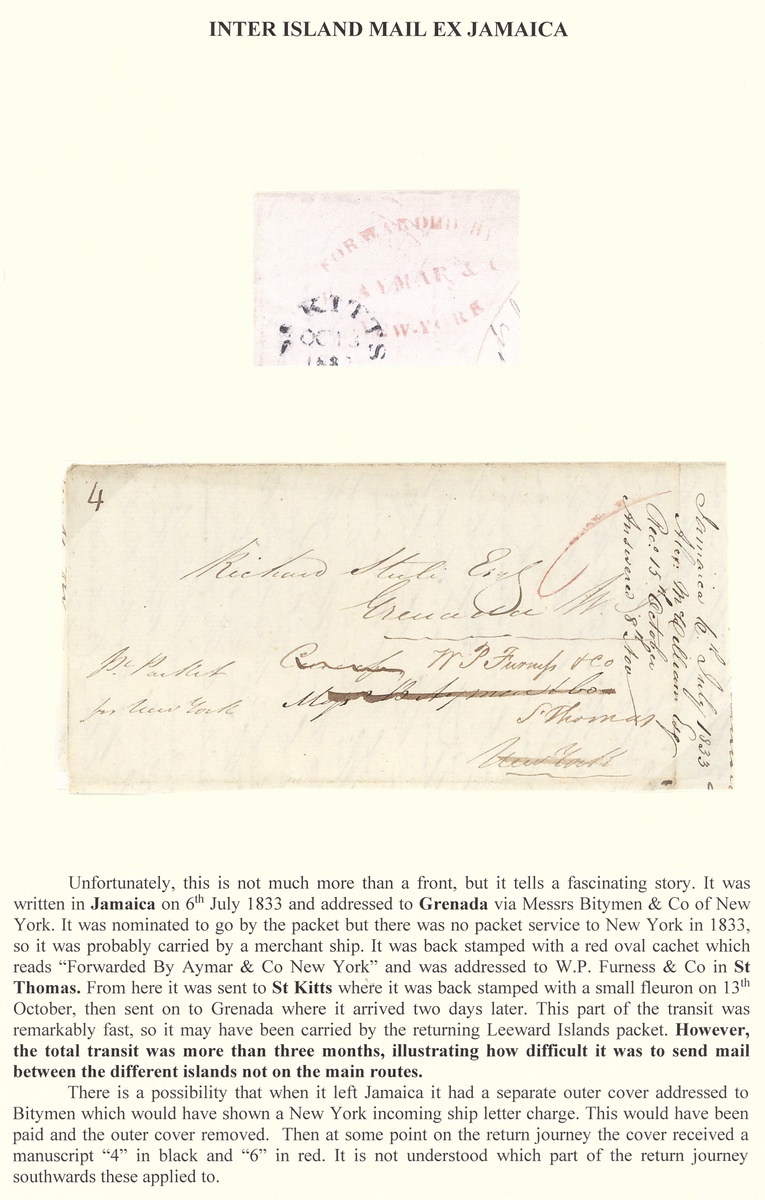 INTER ISLAND MAIL EX JAMAICA
FORWARDED BY
AYMAR & C
NEW-YORK
KITTS
OCT 13
4
Richard Esq
Grenada W.
Pr Packet
for New York
W P Furness & Co
Messrs
St Thomas
New York
Jamaica 6th July 1833
Alexr McWilliam Esq
Recd 15th October
Answered 8th Nov
Unfortunately, this is not much more than a front, but it tells a fascinating story. It was
written in Jamaica on 6th July 1833 and addressed to Grenada via Messrs Bitymen & Co of New
York. It was nominated to go by the packet but there was no packet service to New York in 1833,
so it was probably carried by a merchant ship. It was back stamped with a red oval cachet which
reads “Forwarded By Aymar & Co New York” and was addressed to W.P. Furness & Co in St
Thomas. From here it was sent to St Kitts where it was back stamped with a small fleuron on 13th
October, then sent on to Grenada where it arrived two days later. This part of the transit was
remarkably fast, so it may have been carried by the returning Leeward Islands packet. However,
the total transit was more than three months, illustrating how difficult it was to send mail
between the different islands not on the main routes.
There is a possibility that when it left Jamaica it had a separate outer cover addressed to
Bitymen which would have shown a New York incoming ship letter charge. This would have been
paid and the outer cover removed. Then at some point on the return journey the cover received a
manuscript “4” in black and “6” in red. It is not understood which part of the return journey
southwards these applied to.